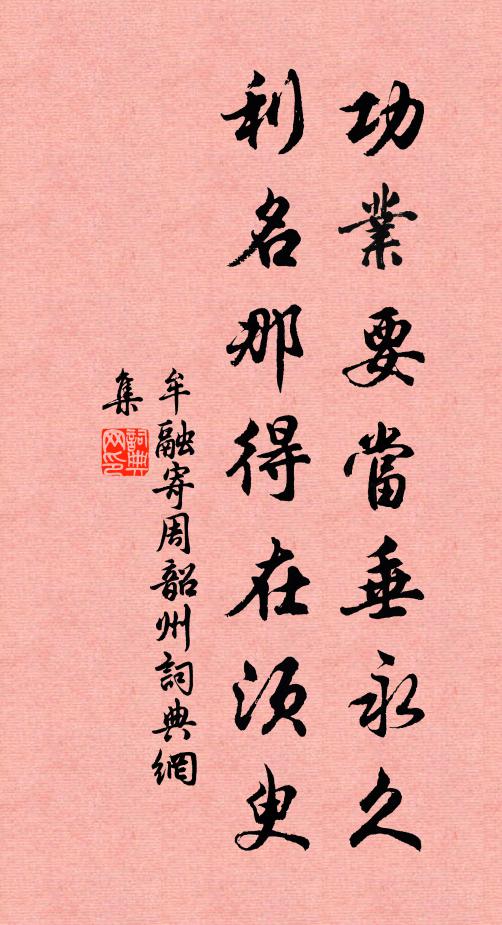 功業要當垂永久
利名那得在須臾
牟融寄周韶州詞典網
集
詞典
网印